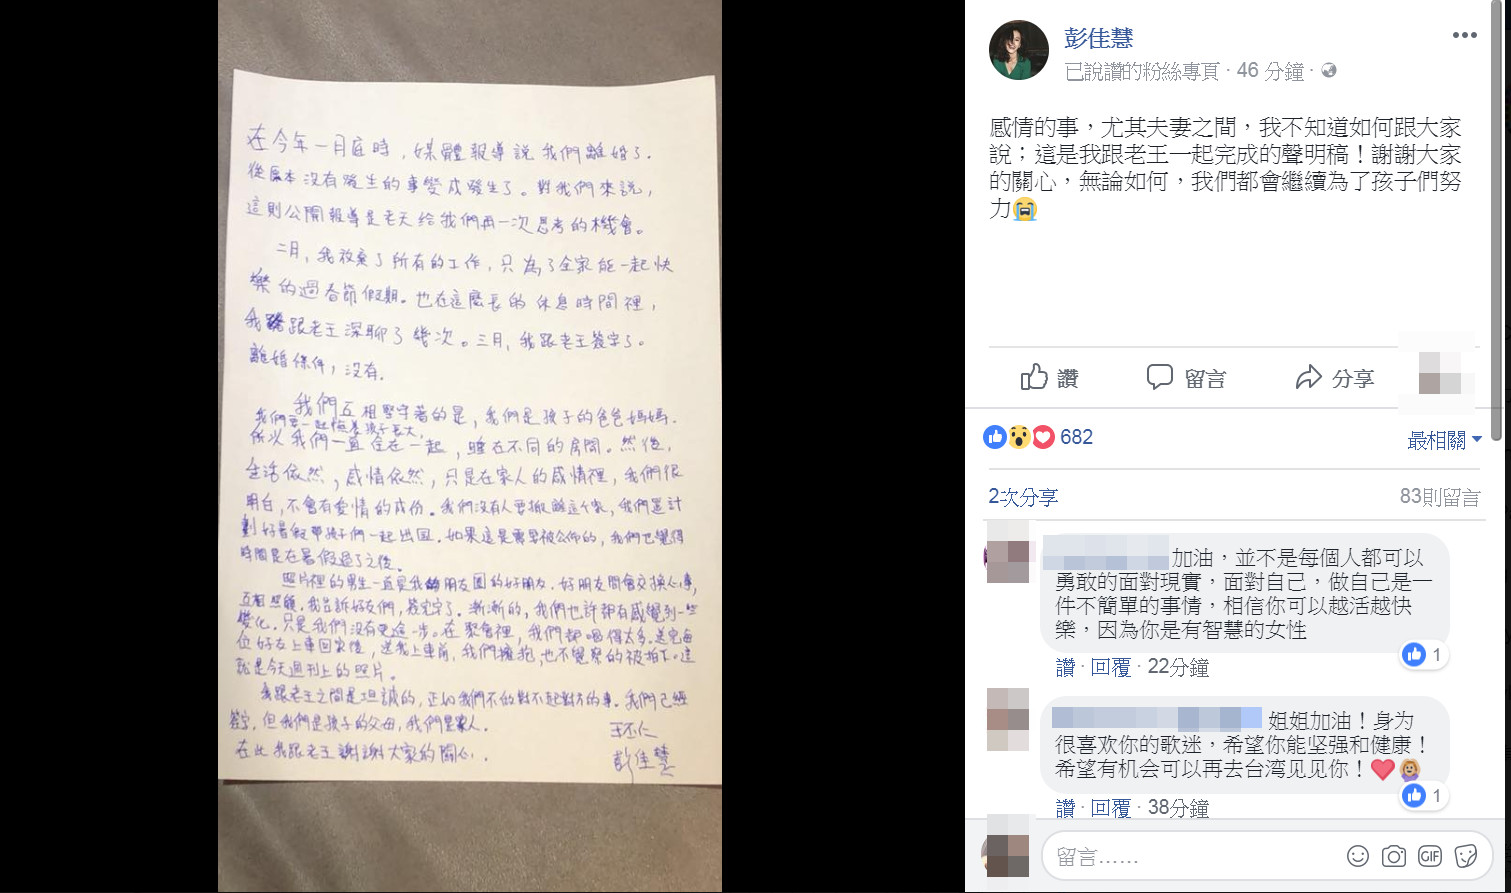 在今年一月底時，媒體報導說我們離婚了．
從原本沒有發生的事變成發生了。對我們來說，
這則公開報導是老天給我們再一次思考的機會。
二月，我放棄了所有的工作，只為了全家能一起快
樂的過春節假期。也在這麼長的休息時間裡，
我跟老王深聊了幾次。三月，我跟老王簽字了。
離婚條件，沒有．
我們互相堅守著的是，我們是孩子的爸爸媽媽．
我們要一起陪著孩子長大，
所以我們一直住在一起，睡在不同的房間。然後，
生活依然，感情依然，只是在家人的感情裡，我們很
明白，不會有愛情的成份。我們沒有人要搬離這個家，我們還計
劃好暑假帶孩子們一起出國．如果這是需要被公佈的，我們也覺得
時間是在暑假過了之後。
照片裡的男生一直是我們朋友圈的好朋友．好朋友間會交換心事，
互相照顧．我告訴好友們，簽完字了．漸漸的，我們也許都有感覺到一些
變化．只是我們沒有更進一步。在聚會裡，我們都喝得太多．送完每
位好友上車回家後，送我上車前，我們擁抱，也不覺察的被拍下．這
就是今天週刊上的照片。
我跟老王之間是坦誠的，正如我們不做對不起對方的事。我們已經
簽字，但我們是孩子的父母，我們是家人．
王丕仁
在此我跟老王謝謝大家的關心．
彭佳慧
彭佳慧
已說讚的粉絲專頁 · 46 分鐘 ·
感情的事，尤其夫妻之間，我不知道如何跟大家
說；這是我跟老王一起完成的聲明稿！謝謝大家
的關心，無論如何，我們都會繼續為了孩子們努
力😭
讚 留言 分享
682 最相關
2次分享 83則留言
加油，並不是每個人都可以
勇敢的面對現實，面對自己，做自己是一
件不簡單的事情，相信你可以越活越快
樂，因為你是有智慧的女性
1
讚 · 回覆 · 22分鐘
姐姐加油！身为
很喜欢你的歌迷，希望你能坚强和健康！
希望有机会可以再去台湾见见你！❤️🙆🏼
1
讚 · 回覆 · 38分鐘
留言…… GIF